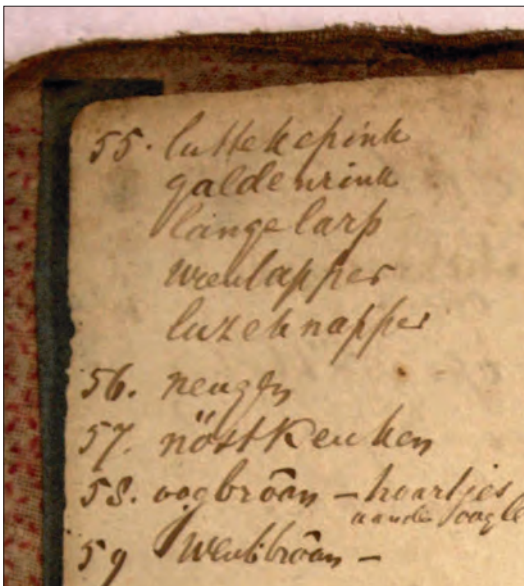 55. luttekepink
galdenrink
lange larp
wrenlapper
luzeknapper
56. neugen
57. nöstkeuken
58. oogbrôan – hoartjes
aande oogle
59 wenkbrôan –